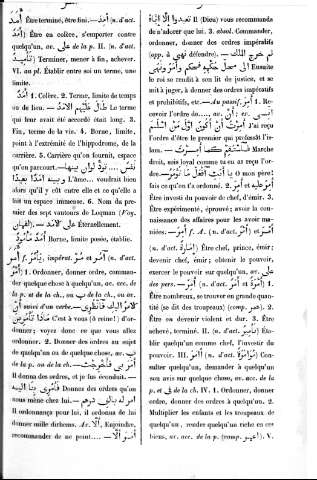 أَمَدَ Être terminé, être fini. — أَمِدَ (n. d'act.
أَمَدٌ) Être en colère, s'emporter contre
quelqu'un, av. على de la p. II. (n. d'act.
تَأْمِيدٌ) Terminer, mener à fin, achever.
VI. au pl. Établir entre soi un terme, une
limite.
أَمَدٌ 1. Colère. 2. Terme, limite de temps
ou de lieu. — طَالَ عَلَيْهِمُ الأَمَدُ Le terme
qui leur avait été accordé était long. 3.
Fin, terme de la vie. 4. Borne, limite,
point à l'extrémité de l'hippodrome, de la
carrière. 5. Carrière qu'on fournit, espace
qu'on parcourt.
بينها وبينه أَمَدًا بعيدًا L'âme... voudrait bien
alors qu'il y eût entre elle et ce qu'elle a
fait un espace immense. 6. Nom du pre-
mier des sept vautours de Loqman (Voy.
لقمان). — Éternellement.
أَمَدٌ مَأْمُودٌ Borne, limite posée, établie.
1. Ordonner, donner ordre, comman-
der quelque chose à quelqu'un, av. acc. de
la p. et de la ch., ou ب de la ch., ou av.
أن suivi d'un verbe.
C'est à vous (à reine!) d'or-
donner; voyez donc ce que vous allez
ordonner. 2. Donner des ordres au sujet
de quelqu'un ou de quelque chose, av. ب
de la p. ou de la ch.
donna des ordres, et je fus éreconduit.
Donnez des ordres qu'on
nous mène chez lui.
Il ordonnança pour lui, il ordonna de lui
donner mille dirhems. Av. أَلَّا, Enjoindre,
recommander de ne point....
Il (Dieu) vous recommande
de n'adorer que lui. 3. absol. Commander,
ordonner, donner des ordres impératifs
(opp. à نهى défendre).
Ensuite
le roi se rendit à son lit de justice, et se
mit à juger, à donner des ordres impératifs
et prohibitifs, etc. — Au passif, أُمِرَ 1. Re-
cevoir l'ordre du..., av. ب; av. أن.
أُمِرْتُ أَنْ أَكُونَ أَوَّلَ مَنْ أَسْلَمَ J'ai reçu
l'ordre d'être le premier qui professât l'is-
lam. — فَاسْتَقِمْ كَمَا أُمِرْتَ Marche
droit, sois loyal comme tu en as reçu l'or-
dre. — يَا أَبَتِ افْعَلْ مَا تُؤْمَرُ O mon père!
fais ce qu'on t'a ordonné. 2. أُمِرَ عليه et أُمِّرَ
Être investi du pouvoir de chef, d'émir. 3.
Être expérimenté, éprouvé; avoir la con-
naissance des affaires pour les avoir ma-
niées. — أَمَرَ f. A. (n. d'act. أَمْرٌ et
(n. d'act. إِمَارَةٌ) Être chef, prince, émir;
devenir chef, émir; obtenir le pouvoir,
exercer le pouvoir sur quelqu'un, av. على
des pers. — أَمِرَ (n. d'act. أَمَرٌ et أَمَرَةٌ) 1.
Être nombreux, se trouver en grande quan-
tité (se dit des troupeaux) (comp. عمر). 2.
Être ou devenir violent et dur. 3. Être
achevé, terminé. II. (n. d'act. تَأْمِيرٌ) Éta-
blir quelqu'un comme chef, l'investir du
pouvoir. III. آمَرَ (n. d'act. مُؤَامَرَةٌ) Con-
sulter quelqu'un, demander à quelqu'un
son avis sur quelque chose, av. acc. de la
p. et في de la ch. IV. 1. Ordonner, donner
ordre, donner des ordres à quelqu'un. 2.
Multiplier les enfants et les troupeaux de
quelqu'un, rendre quelqu'un riche en ces
biens, av. acc. de la p. (comp. أعمر). V.